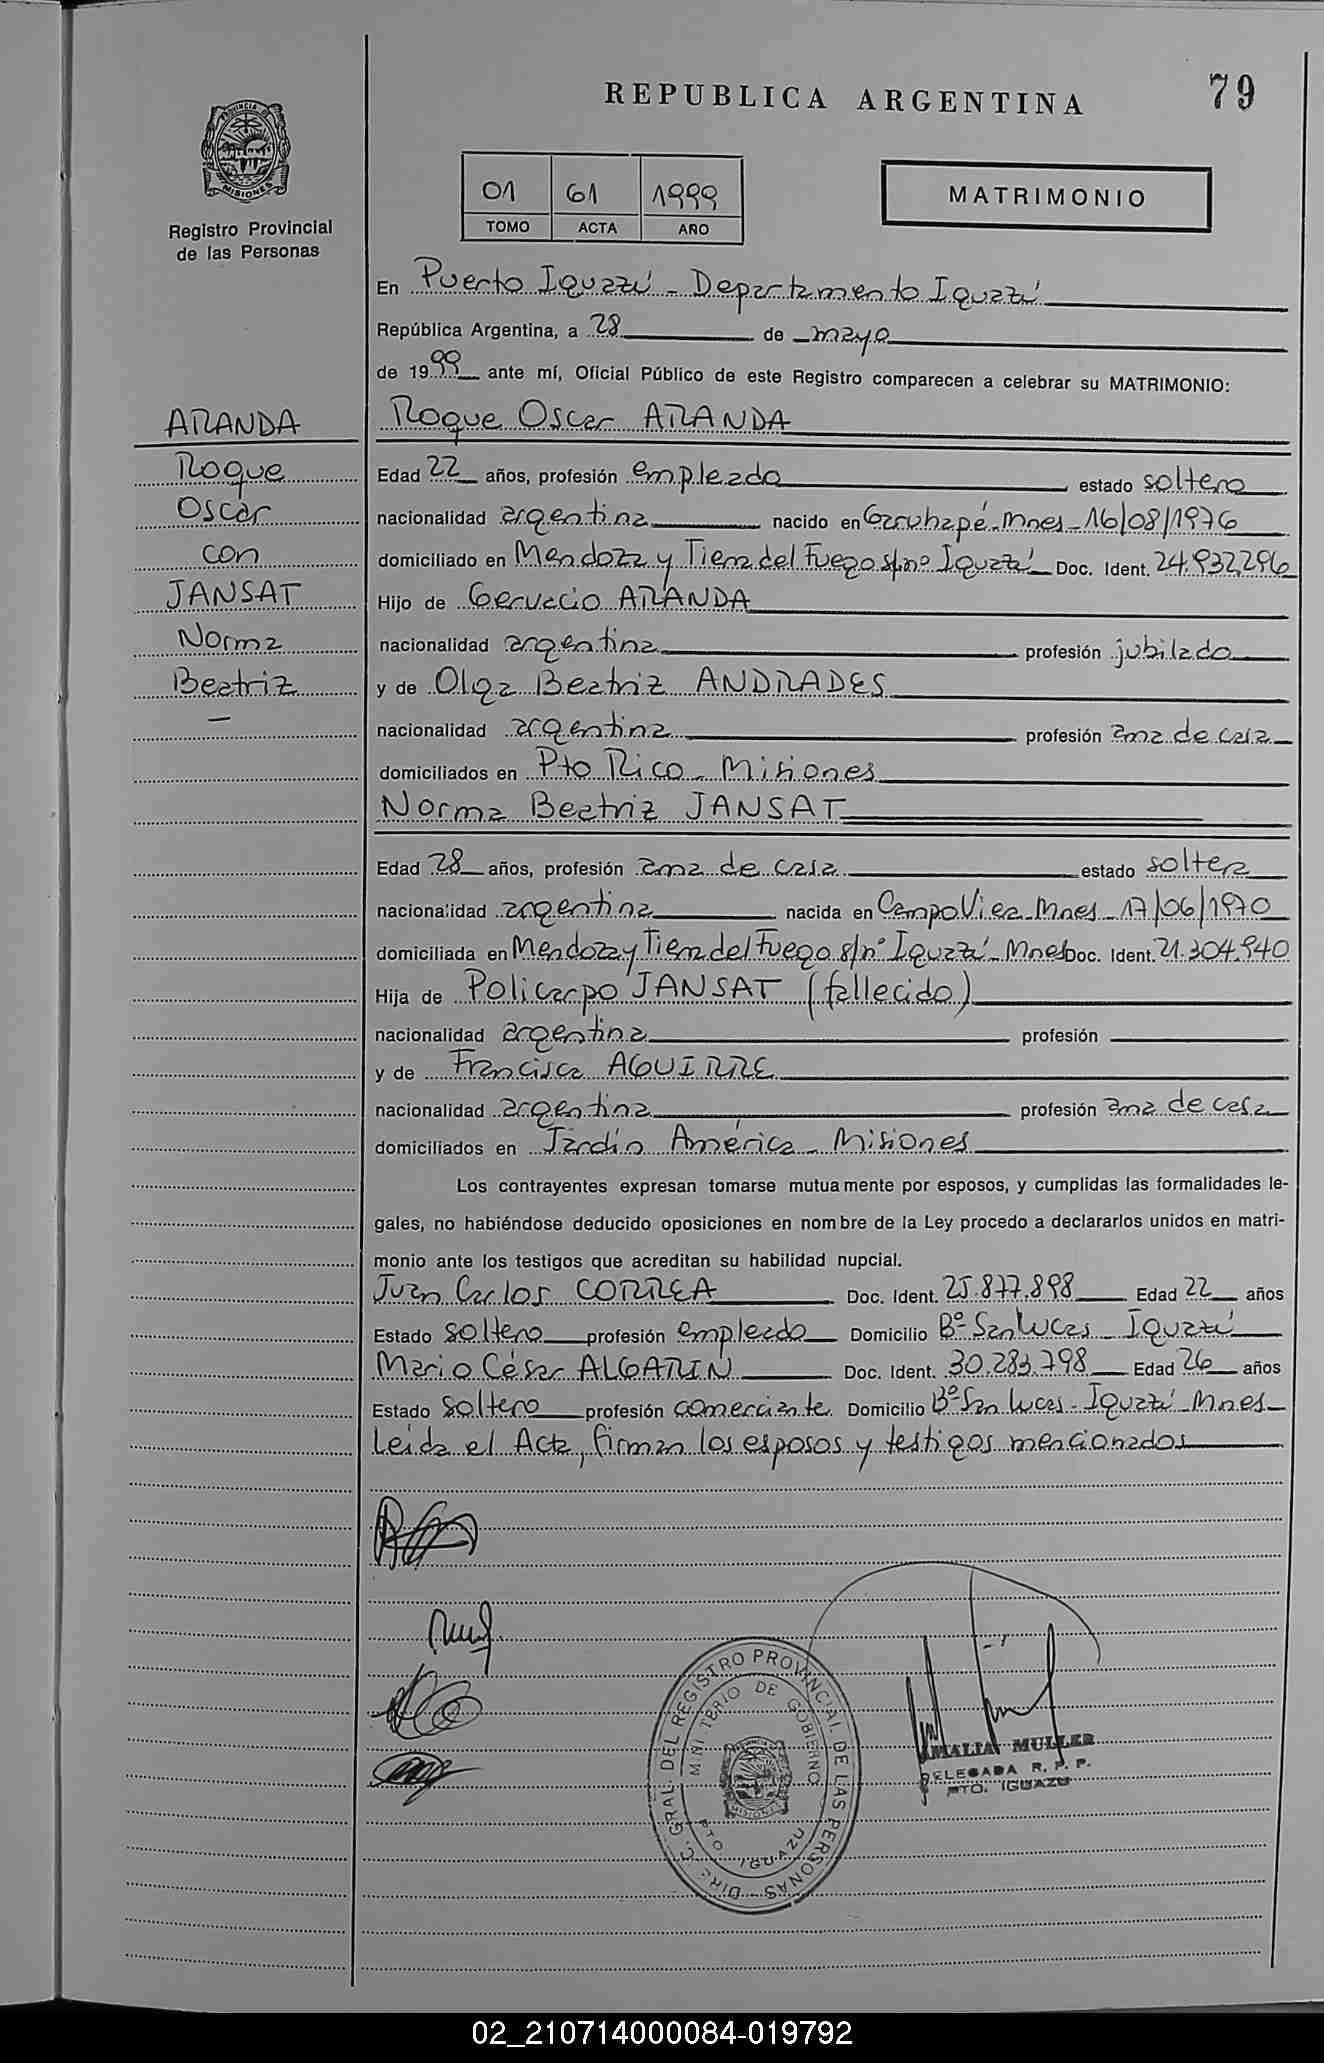 REPUBLICA ARGENTINA
79
PROVINCIA DE
MISIONES
Registro Provincial
de las Personas
01 61 1999
TOMO ACTA AÑO
MATRIMONIO
En Puerto Iguazú - Departamento Iguazú
República Argentina, a 28 de mayo
de 1999 ante mí, Oficial Público de este Registro comparecen a celebrar su MATRIMONIO:
ARANDA
Roque
Oscar
con
JANSAT
Norma
Beatriz
Roque Oscar ARANDA
Edad 22 años, profesión empleado estado soltero
nacionalidad argentina nacido en Garuhapé - Mnes - 16/08/1976
domiciliado en Mendoza y Tierra del Fuego s/nº Iguazú Doc. Ident. 24.932.296
Hijo de Gervacio ARANDA
nacionalidad argentina profesión jubilado
y de Olga Beatriz ANDRADES
nacionalidad argentina profesión ama de casa
domiciliados en Pto Rico - Misiones
Norma Beatriz JANSAT
Edad 28 años, profesión ama de casa estado soltera
nacionalidad argentina nacida en Campo Viera - Mnes - 17/06/1970
domiciliada en Mendoza y Tierra del Fuego s/nº Iguazú - Mnes Doc. Ident. 21.304.940
Hija de Policarpo JANSAT (fallecido)
nacionalidad argentina profesión
y de Francisca AGUIRRE
nacionalidad argentina profesión ama de casa
domiciliados en Jardín América - Misiones
Los contrayentes expresan tomarse mutuamente por esposos, y cumplidas las formalidades le-
gales, no habiéndose deducido oposiciones en nombre de la Ley procedo a declararlos unidos en matri-
monio ante los testigos que acreditan su habilidad nupcial.
Juan Carlos CORREA Doc. Ident. 25.877.898 Edad 22 años
Estado soltero profesión empleado Domicilio Bº San Lucas - Iguazú
Mario César ALGARIN Doc. Ident. 30.283.798 Edad 26 años
Estado soltero profesión comerciante Domicilio Bº San Lucas - Iguazú - Mnes -
Leida el Acta, firman los esposos y testigos mencionados
DIREC. GRAL. DEL REGISTRO PROVINCIAL DE LAS PERSONAS
MINISTERIO DE GOBIERNO
PTO. IGUAZU
MISIONES
AMALIA MULLER
DELEGADA R. P. P.
PTO. IGUAZU
02_210714000084-019792